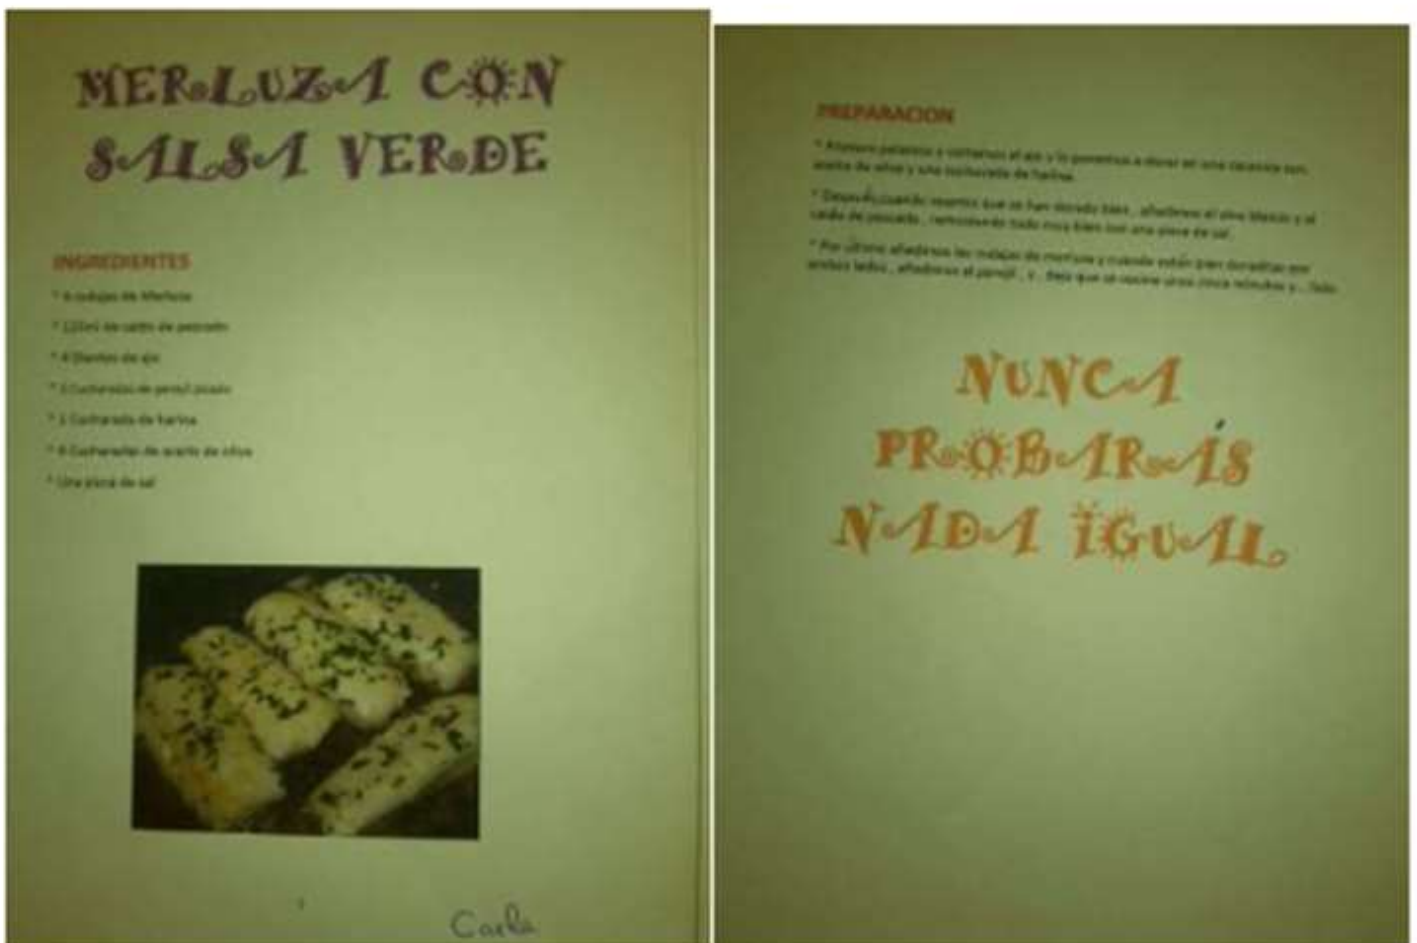 MERLUZA CON
SALSA VERDE
INGREDIENTES
* rodajas de Merluza
* de caldo de pescado
* 4 Dientes de ajo
* Cucharadas de perejil picado
* 1 Cucharada de harina
* Cucharadas de aceite de oliva
* Una pizca de sal
Carla
PREPARACION
* pelamos y cortamos el ajo y lo ponemos a dorar en una cazuela con
aceite de oliva y una cucharada de harina.
* Después, cuando veamos que se han dorado bien, añadimos el vino blanco y el
caldo de pescado, removiendo todo muy bien con una pizca de sal.
* Por último añadimos las rodajas de merluza y cuando estén bien doraditas por
ambos lados, añadimos el perejil, y.. deja que se cocine unos cinco minutos y... listo
NUNCA
PROBARÁS
NADA IGUAL